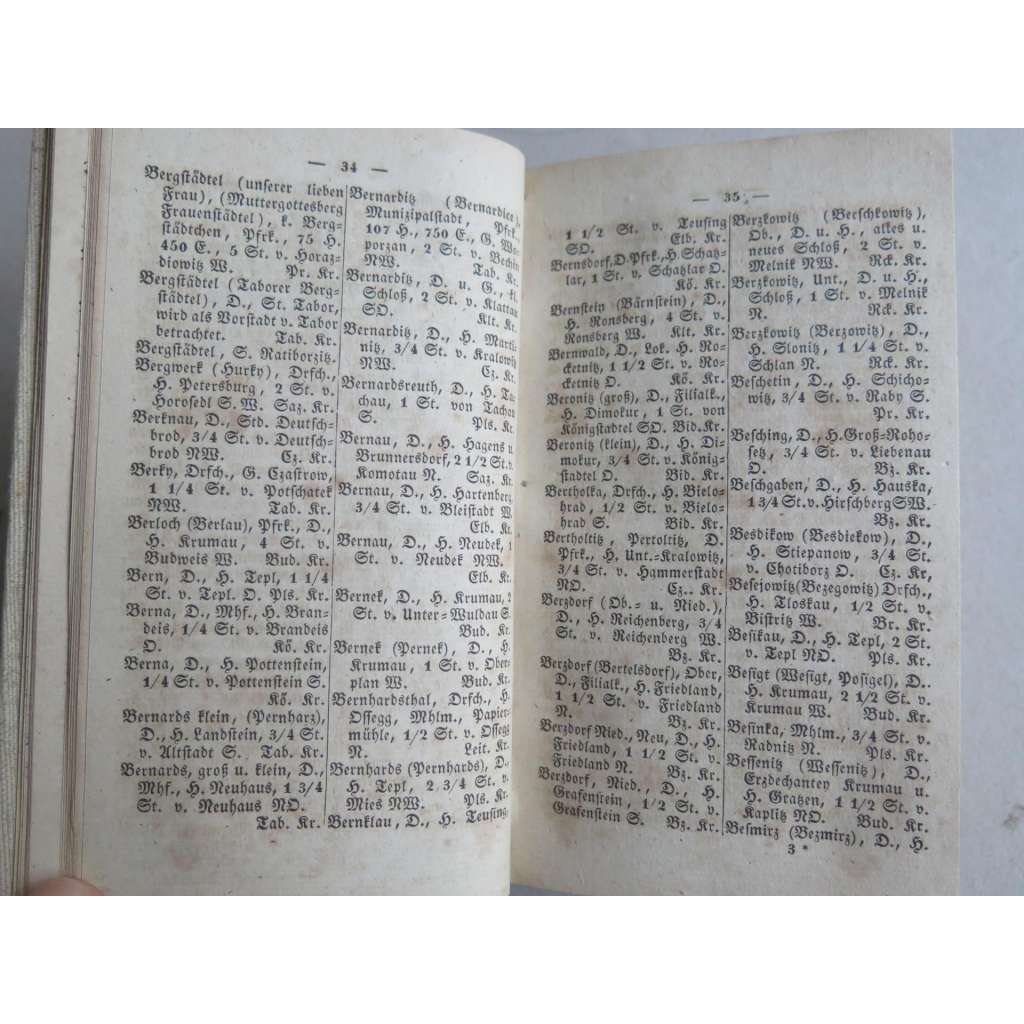 — 34 —
Bergstädtel (unserer lieben
Frau), (Muttergottesberg
Frauenstädtel), k. Berg=
städtchen, Pfrk., 75 H.
450 E., 5 St. v. Horaz=
diowitz W. Pr. Kr.
Bergstädtel (Taborer Berg=
städtel), D., St. Tabor,
wird als Vorstadt v. Tabor
betrachtet. Tab. Kr.
Bergstädtel, S. Ratiborzitz.
Bergwerk (Hurky), Drfch.,
H. Petersburg, 2 St. v.
Horosedl S. W. Saz. Kr.
Berknau, D., Std. Deutsch=
brod, 3/4 St. v. Deutsch=
brod NW. Cz. Kr.
Berky, Drfch., G. Czastrow,
1 1/4 St. v. Potschatek
NW. Tab. Kr.
Berloch (Berlau), Pfrk., D.,
H. Krumau, 4 St. v.
Budweis W. Bud. Kr.
Bern, D., H. Tepl, 1 1/4
St. v. Tepl. O. Pls. Kr.
Berna, D., Mhf., H. Bran=
deis, 1/4 St. v. Brandeis
O. Kö. Kr.
Berna, D., H. Pottenstein,
1/4 St. v. Pottenstein S.
Kö. Kr.
Bernards klein, (Pernharz),
D., H. Landstein, 3/4 St.
v. Altstadt S. Tab. Kr.
Bernards, groß u. klein, D.,
Mhf., H. Neuhaus, 1 3/4
St. v. Neuhaus NO.
Tab. Kr.
Bernarditz (Bernardice),
Munizipalstadt, Pfrk.,
107 H., 750 E., G. 
porzan, 2 St. v. 
NW. Tab. Kr.
Bernarditz, D. u. G., kl.
Schloß, 2 St. v. Klattau
SO. Klt. Kr.
Bernarditz, D., H. Marti=
nitz, 3/4 St. v. Kralowitz
NW. Cz. Kr.
Bernardsreuth, D., H. Ta=
chau, 1 St. von Tachau
S. Pls. Kr.
Bernau, D., H. Hagens u.
Brunnersdorf, 2 1/2 St. v.
Komotau N. Saz. Kr.
Bernau, D., H. Hartenberg,
3/4 St. v. Bleistadt W.
Elb. Kr.
Bernau, D., H. Neudek, 1
St. v. Neudek NW.
Elb. Kr.
Bernek, D., H. Krumau, 2
St. v. Unter=Wuldau S.
Bud. Kr.
Bernek (Pernek), D., H.
Krumau, 1 St. v. Ober=
plan W. Bud. Kr.
Bernhardsthal, Drfch., H.
Ossegg, Mhlm., Papier=
mühle, 1/2 St. v. Ossegg
N. Leit. Kr.
Bernhards (Pernhards), D.,
H. Tepl, 2 3/4 St. v.
Mies NW. Pls. Kr.
Bernklau, D., H. Teusing,
— 35 —
1 1/2 St. v. Teusing
SO. Elb. Kr.
Bernsdorf, D. Pfrk., H. Schatz=
lar, 1 St. v. Schatzlar O.
Kö. Kr.
Bernstein (Bärnstein), D.,
H. Ronsberg, 4 St. v.
Ronsberg W. Klt. Kr.
Bernwald, D., Lok. H. Ro=
cketnitz, 1 1/2 St. v. Ro=
cketnitz O. Kö. Kr.
Beronitz (groß), D., Filialk.,
H. Dimokur, 1 St. von
Königstadtel SO. Bid. Kr.
Beronitz (klein), D., H. Di=
mokur, 3/4 St. v. König=
stadtel O. Bid. Kr.
Bertholka, Drfch., H. Bielo=
hrad, 1/2 St. v. Bielo=
hrad S. Bid. Kr.
Bertholtitz, Pertoltitz, D.
Pfrk., H. Unt.=Kralowitz,
3/4 St. v. Hammerstadt
NO. Cz. Kr.
Berzdorf (Ob.= u. Nied.),
D., H. Reichenberg, 3/4
St. v. Reichenberg W.
Bz. Kr.
Berzdorf (Bertelsdorf), Ober,
D., Filialk., H. Friedland,
1 1/2 St. v. Friedland
N. Bz. Kr.
Berzdorf Nied., Neu, D., H.
Friedland, 1 1/2 St. v.
Friedland N. Bz. Kr.
Berzdorf, Nied., D., H.
Grafenstein, 1/2 St. v.
Grafenstein S. Bz. Kr.
Berzkowitz (Berschkowitz),
Ob., D. u. H., altes u.
neues Schloß, 2 St. v.
Melnik NW. Rck. Kr.
Berzkowitz, Unt., D. u. H.,
Schloß, 1 St. v. Melnik
N. Rck. Kr.
Berzkowitz (Berzowitz), D.,
H. Slonitz, 1 1/4 St. v.
Schlan N. Rck. Kr.
Beschetin, D., H. Schicho=
witz, 3/4 St. v. Raby S.
Pr. Kr.
Besching, D., H. Groß=Roho=
setz, 3/4 St. v. Liebenau
O. Bz. Kr.
Beschgaben, D., H. Hauska,
1 3/4 St. v. Hirschberg SW.
Bz. Kr.
Besdikow (Besdiekow), D.,
H. Stiepanow, 3/4 St.
v. Chotiborz O. Cz. Kr.
Besejowitz (Bezegowitz) Drfch.,
H. Tloskau, 1/2 St. v.
Bistritz W. Br. Kr.
Besikau, D., H. Tepl, 2 St.
v. Tepl NO. Pls. Kr.
Besigt (Wesigt, Posigel), D..
H. Krumau, 2 1/2 St. v.
Krumau W. Bud. Kr.
Besinka, Mhlm., 3/4 St. v.
Radnitz N. Pls. Kr.
Bessenitz (Wessenitz), D.,
Erzdechantey Krumau u.
H. Gratzen, 1 1/2 St. v.
Kaplitz NO. Bud. Kr.
Besmirz (Bezmirz), D., H.
3 *